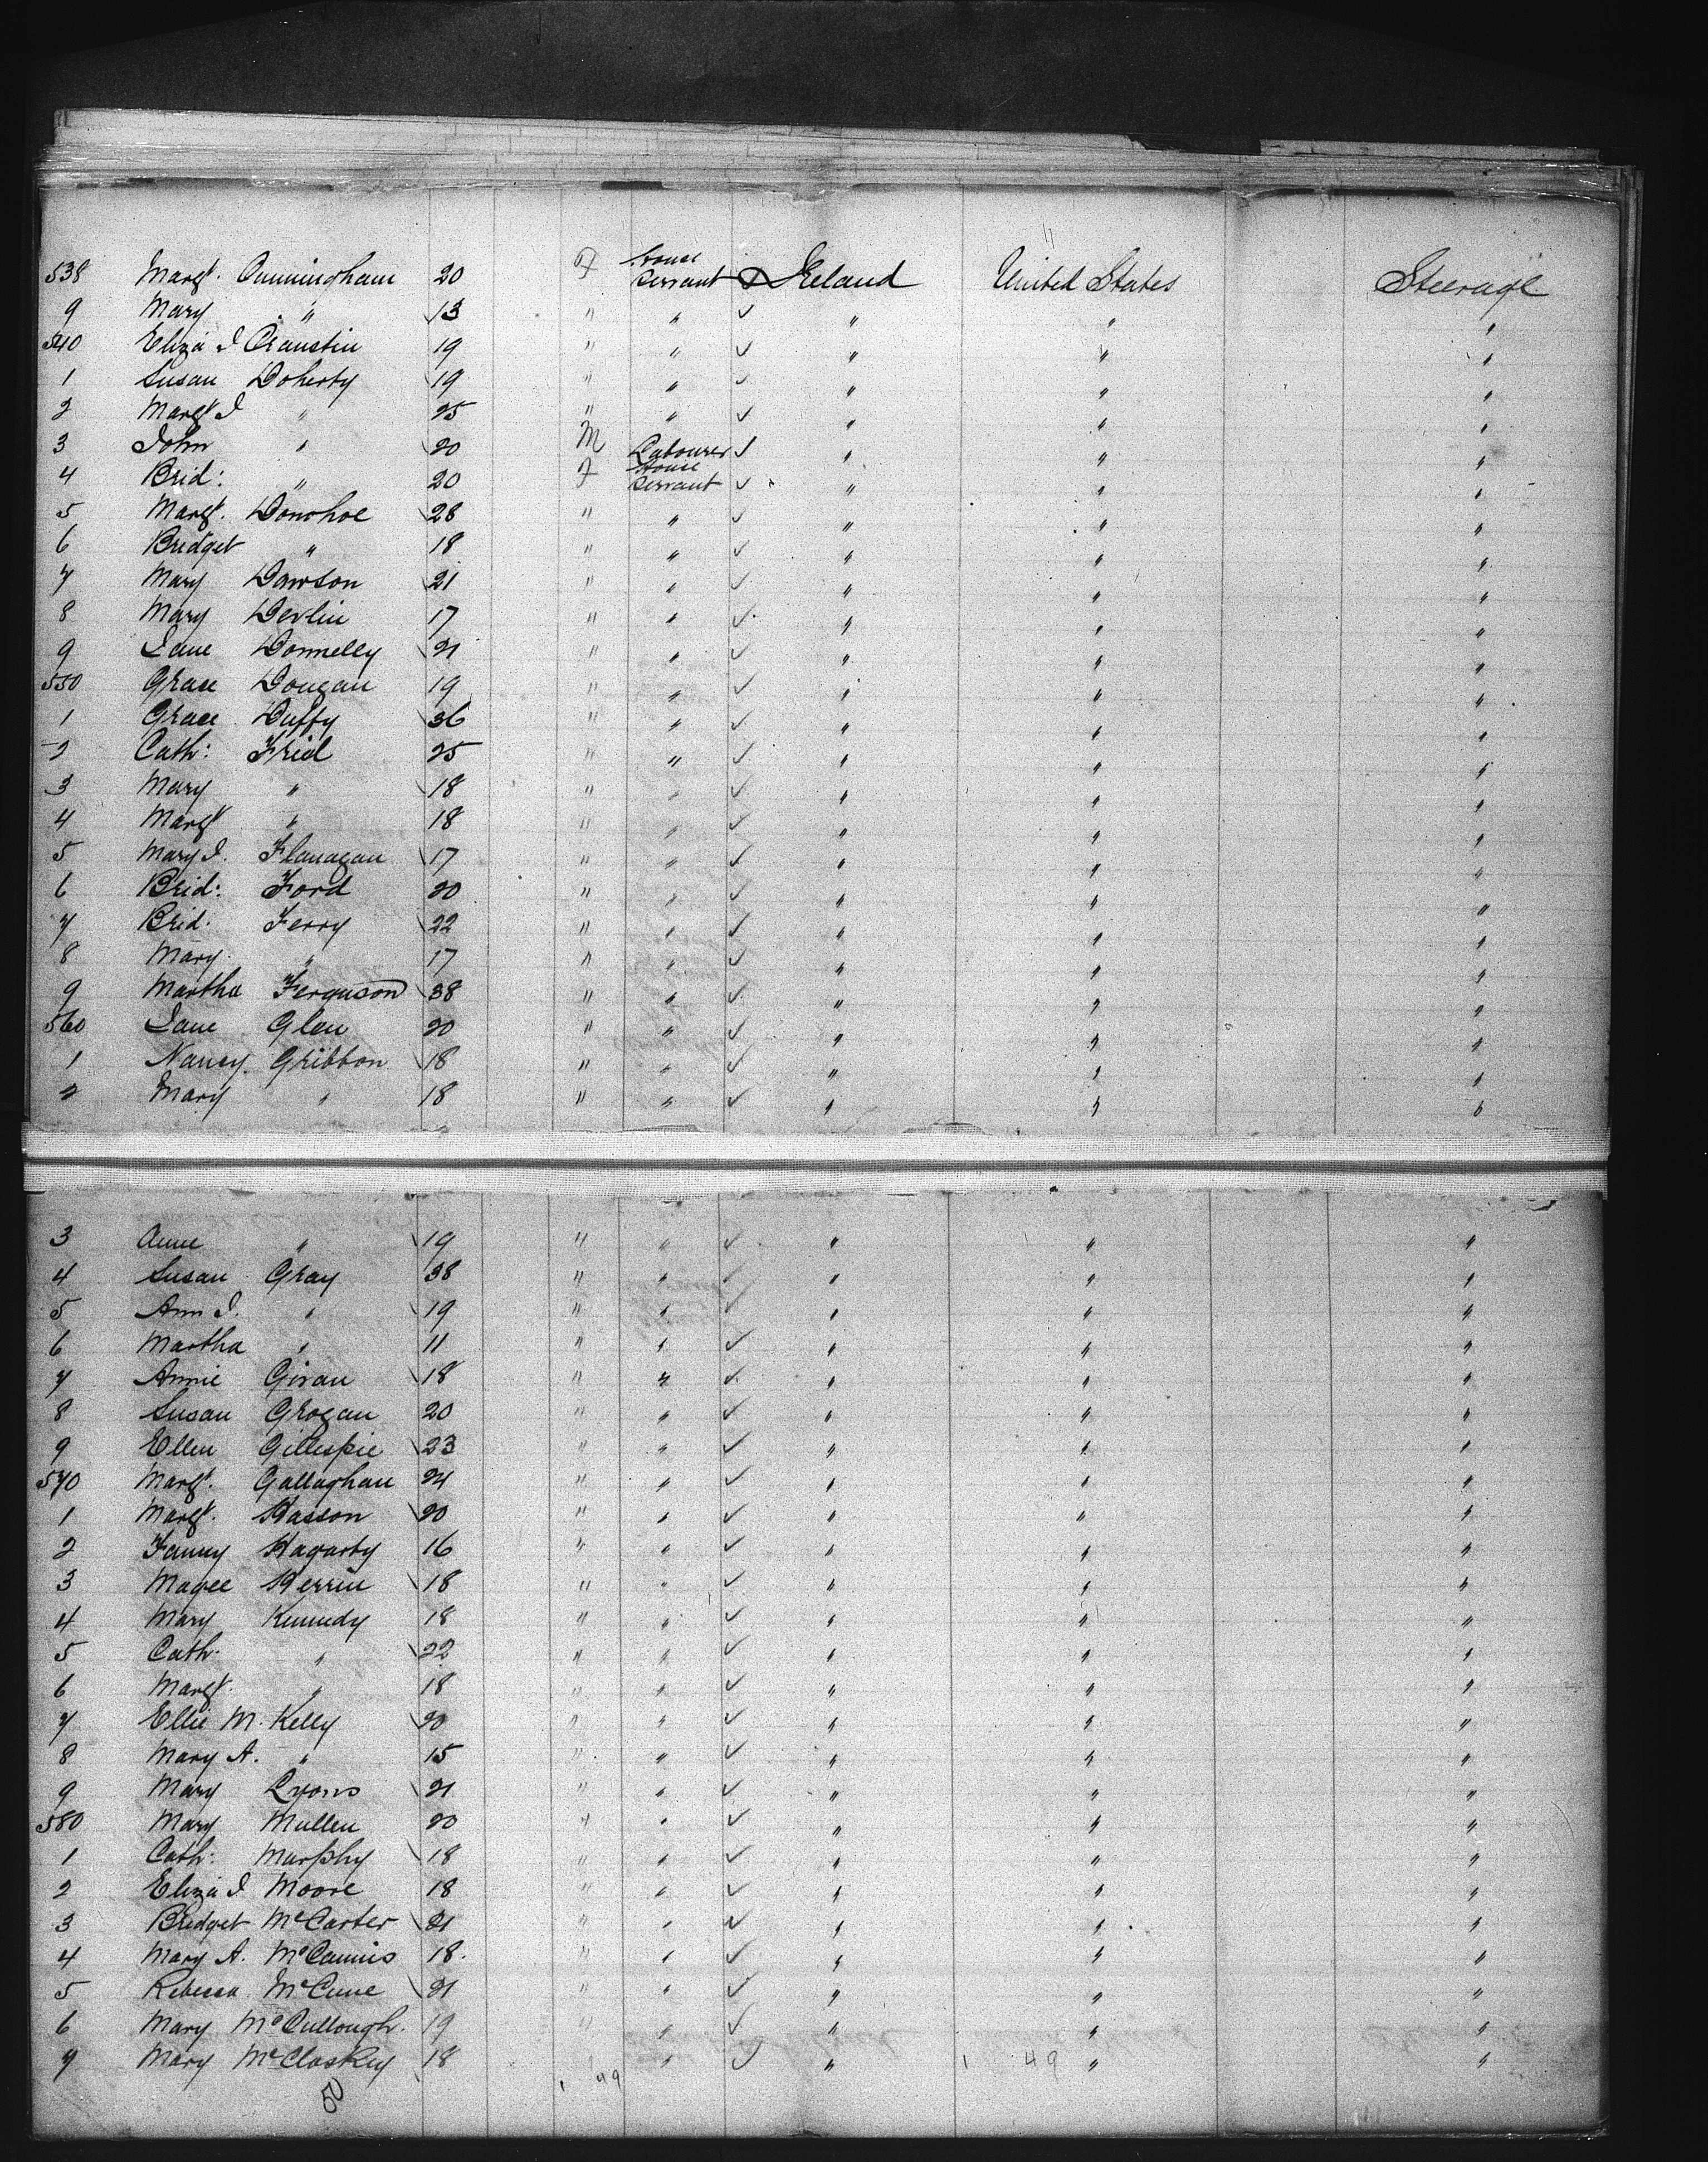 "
538 Margt. Cunningham 20 F House Servant Ireland United States Steerage
9 Mary " 13 " " ✓ " " "
540 Eliza J Cranstin 19 " " ✓ " " "
1 Susan Doherty 19 " " ✓ " " "
2 Margt J " 25 " " ✓ " " "
3 John " 20 M Labourer ✓ " " "
4 Brid: " 20 F House Servant ✓ " " "
5 Margt. Donohoe 28 " " ✓ " " "
6 Bridget " 18 " " ✓ " " "
7 Mary Dawson 21 " " ✓ " " "
8 Mary Devlin 17 " " ✓ " " "
9 Jane Donnelly 21 " " ✓ " " "
550 Grace Dougan 19 " " ✓ " " "
1 Grace Duffy 36 " " ✓ " " "
2 Cath: Friel 25 " " ✓ " " "
3 Mary " 18 " " ✓ " " "
4 Margt " 18 " " ✓ " " "
5 Mary J. Flanagan 17 " " ✓ " " "
6 Brid: Ford 20 " " ✓ " " "
7 Brid. Ferry 22 " " ✓ " " "
8 Mary " 17 " " ✓ " " "
9 Martha Ferguson 38 " " ✓ " " "
560 Jane Glen 20 " " ✓ " " "
1 Nancy Gribbon 18 " " ✓ " " "
2 Mary " 18 " " ✓ " " "
3 Anne " 19 " " ✓ " " "
4 Susan Gray 38 " " ✓ " " "
5 Ann J. " 19 " " ✓ " " "
6 Martha " 11 " " ✓ " " "
7 Annie Givan 18 " " ✓ " " "
8 Susan Grogan 20 " " ✓ " " "
9 Ellen Gillespie 23 " " ✓ " " "
570 Margt. Gallaghan 24 " " ✓ " " "
1 Margt. Hasson 20 " " ✓ " " "
2 Fanny Hagarty 16 " " ✓ " " "
3 Magee Herrin 18 " " ✓ " " "
4 Mary Kennedy 18 " " ✓ " " "
5 Cath. " 22 " " ✓ " " "
6 Margt. " 18 " " ✓ " " "
7 Ellie M. Kelly 20 " " ✓ " " "
8 Mary A. " 15 " " ✓ " " "
9 Mary Lyons 21 " " ✓ " " "
580 Mary Mullen 20 " " ✓ " " "
1 Cath: Murphy 18 " " ✓ " " "
2 Eliza J Moore 18 " " ✓ " " "
3 Bridget McCarter 21 " " ✓ " " "
4 Mary A. McCannis 18. " " ✓ " " "
5 Rebecca McCune 21 " " ✓ " " "
6 Mary McCullough. 19 " " ✓ " " "
7 Mary McCloskey 18 " ✓ " 1 49 " "
50 1 49